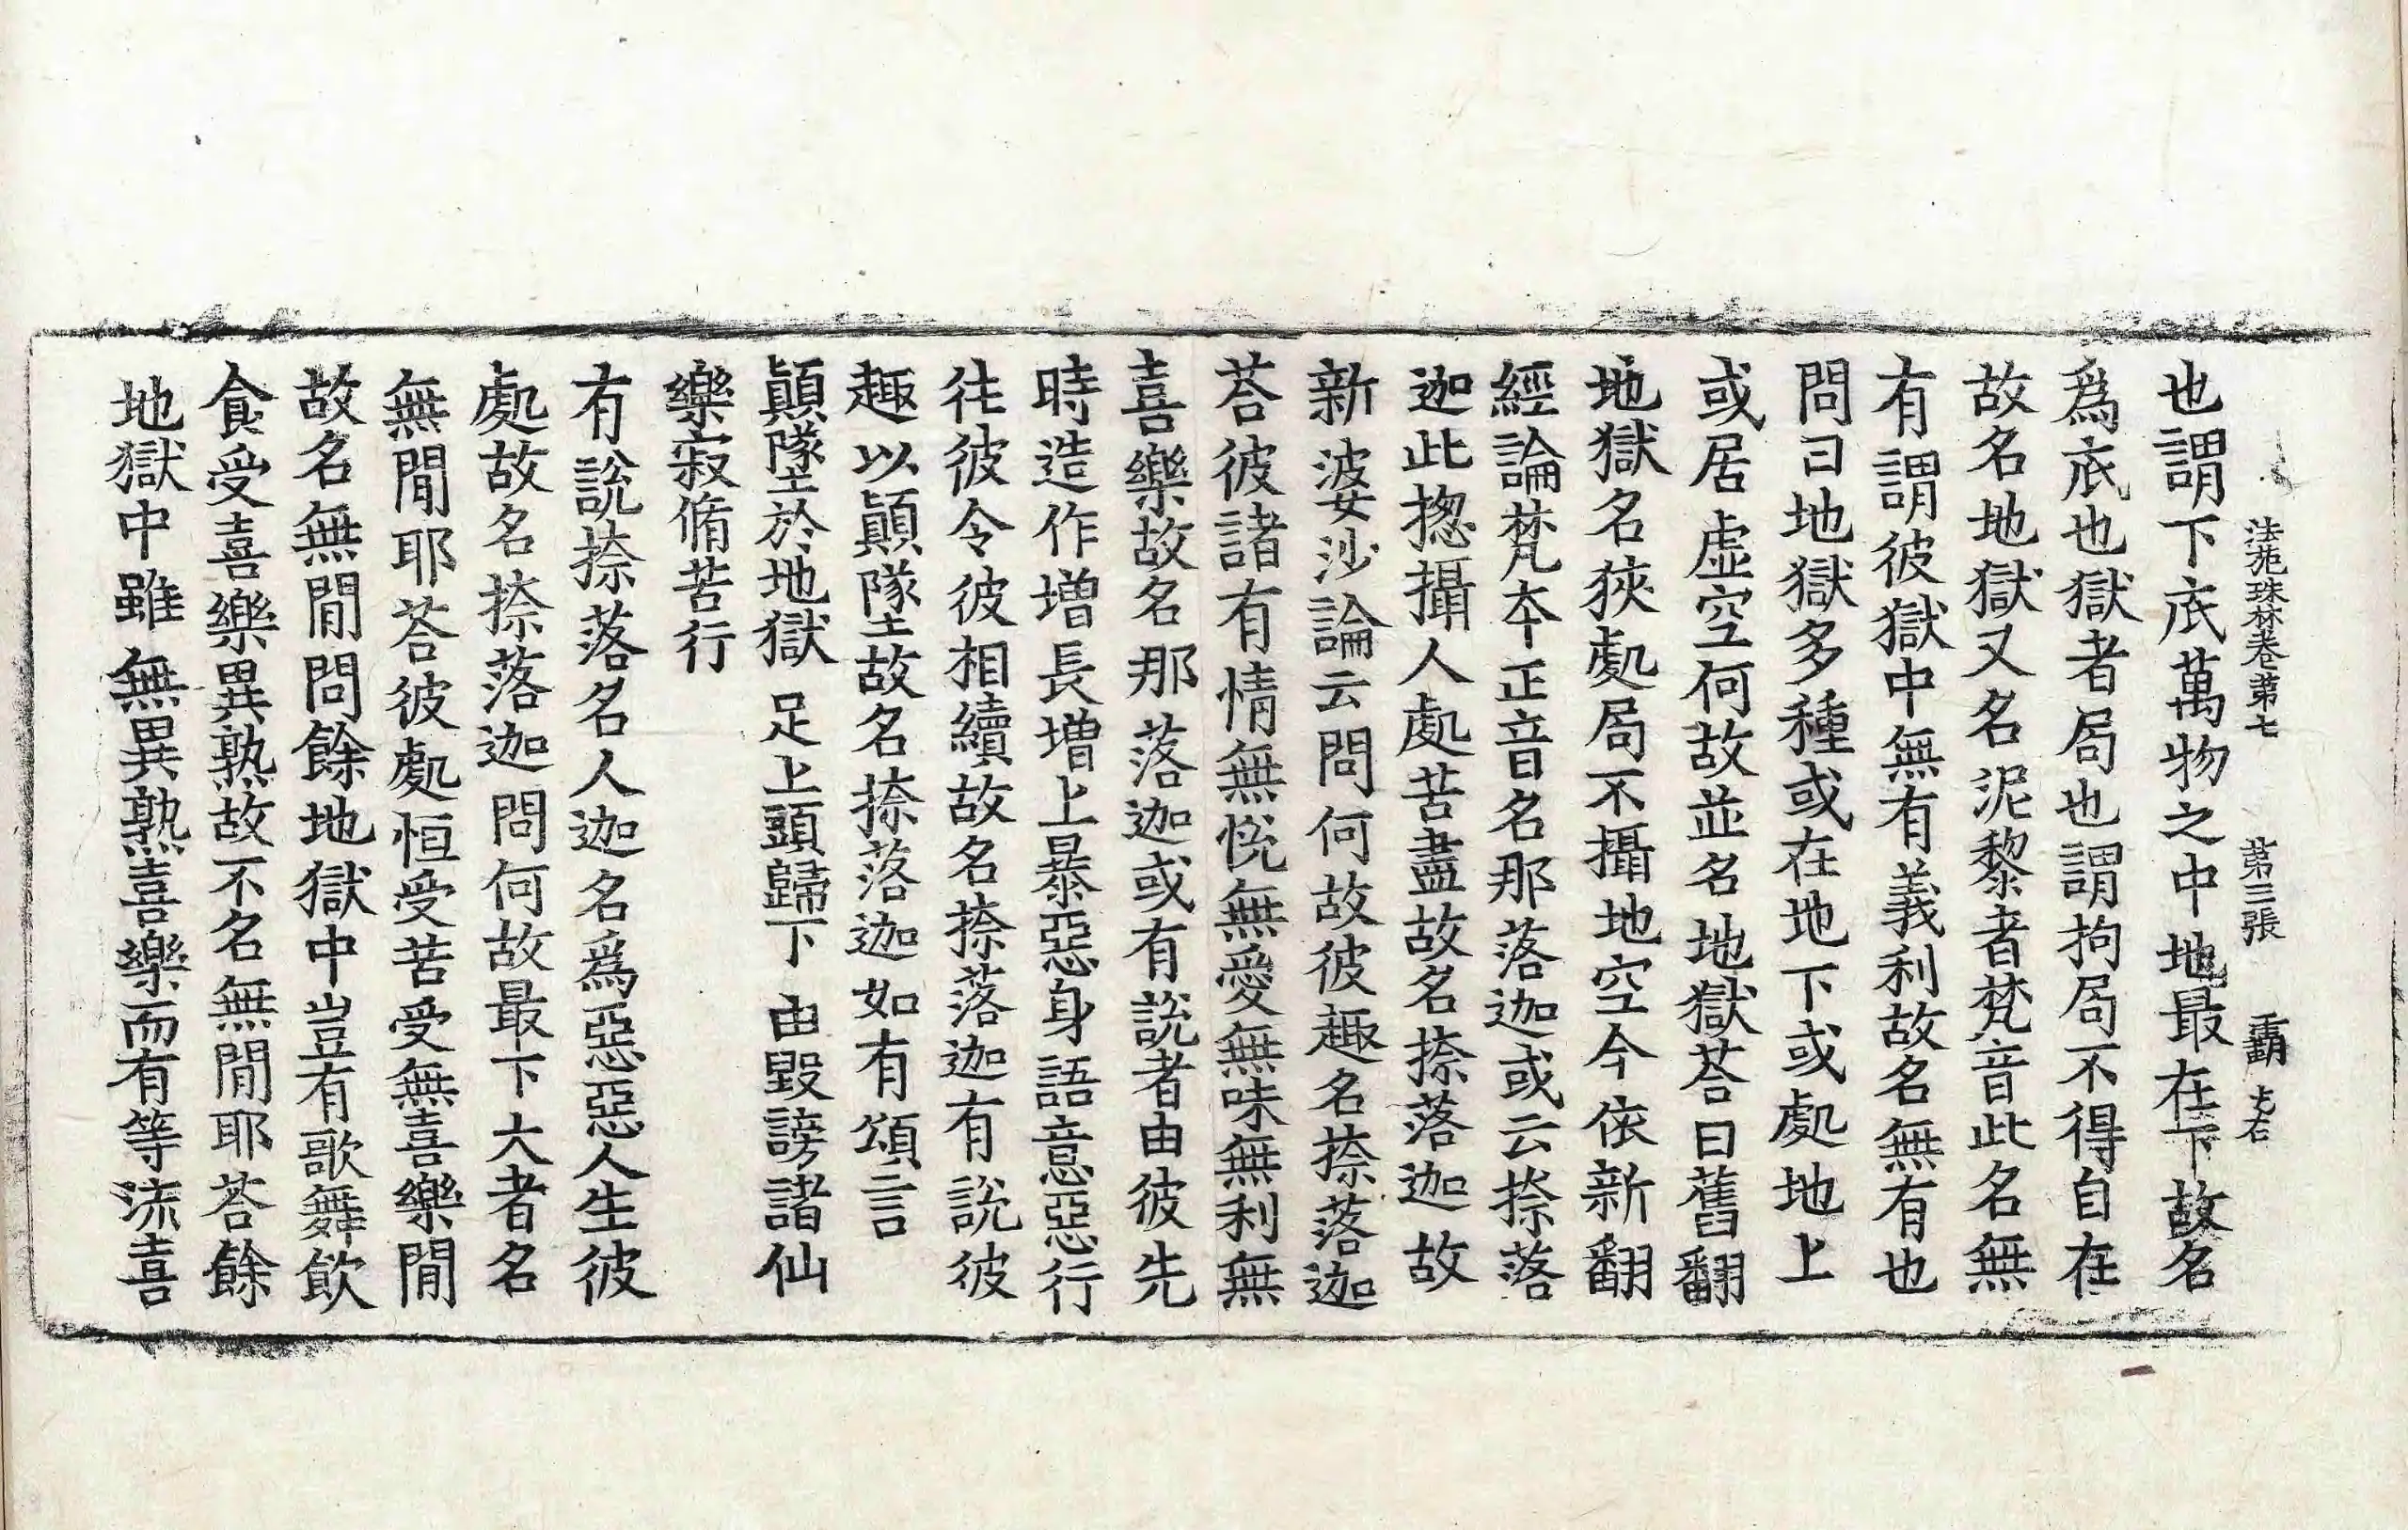 法苑珠林卷苐七　苐三張　霸
也謂下底萬物之中地最在下故名
爲底也獄者局也謂拘局不得自在
故名地獄又名泥黎者梵音此名無
有謂彼獄中無有義利故名無有也
問曰地獄多種或在地下或處地上
或居虛空何故並名地獄荅曰舊翻
地獄名狹處局不攝地空今依新翻
經論梵本正音名那落迦或云捺落
迦此揔攝人處苦盡故名捺落迦故
新婆沙論云問何故彼趣名捺落迦
荅彼諸有情無悅無愛無味無利無
喜樂故名那落迦或有說者由彼先
時造作增長增上暴惡身語意惡行
徃彼令彼相續故名捺落迦有說彼
趣以顛墜故名捺落迦如有頌言
顛墜於地獄　足上頭歸下　由毀謗諸仙
樂寂脩苦行
有說捺落名人迦名爲惡惡人生彼
處故名捺落迦問何故最下大者名
無間耶荅彼處恒受苦受無喜樂間
故名無間問餘地獄中豈有歌舞飮
食受喜樂異熟故不名無間耶荅餘
地獄中雖無異熟喜樂而有等流喜